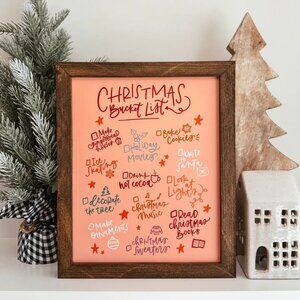 CHRISTMAS
Bucket List
Make
gingerbread
house
Bake
Cookies
Holiday
Movies
Ice
Skating
Write
Santa
Drink
hot cocoa
Look at
Lights
decorate
the tree
Christmas
music
Make
Ornaments
Read
Christmas
Books
Christmas
Sweaters